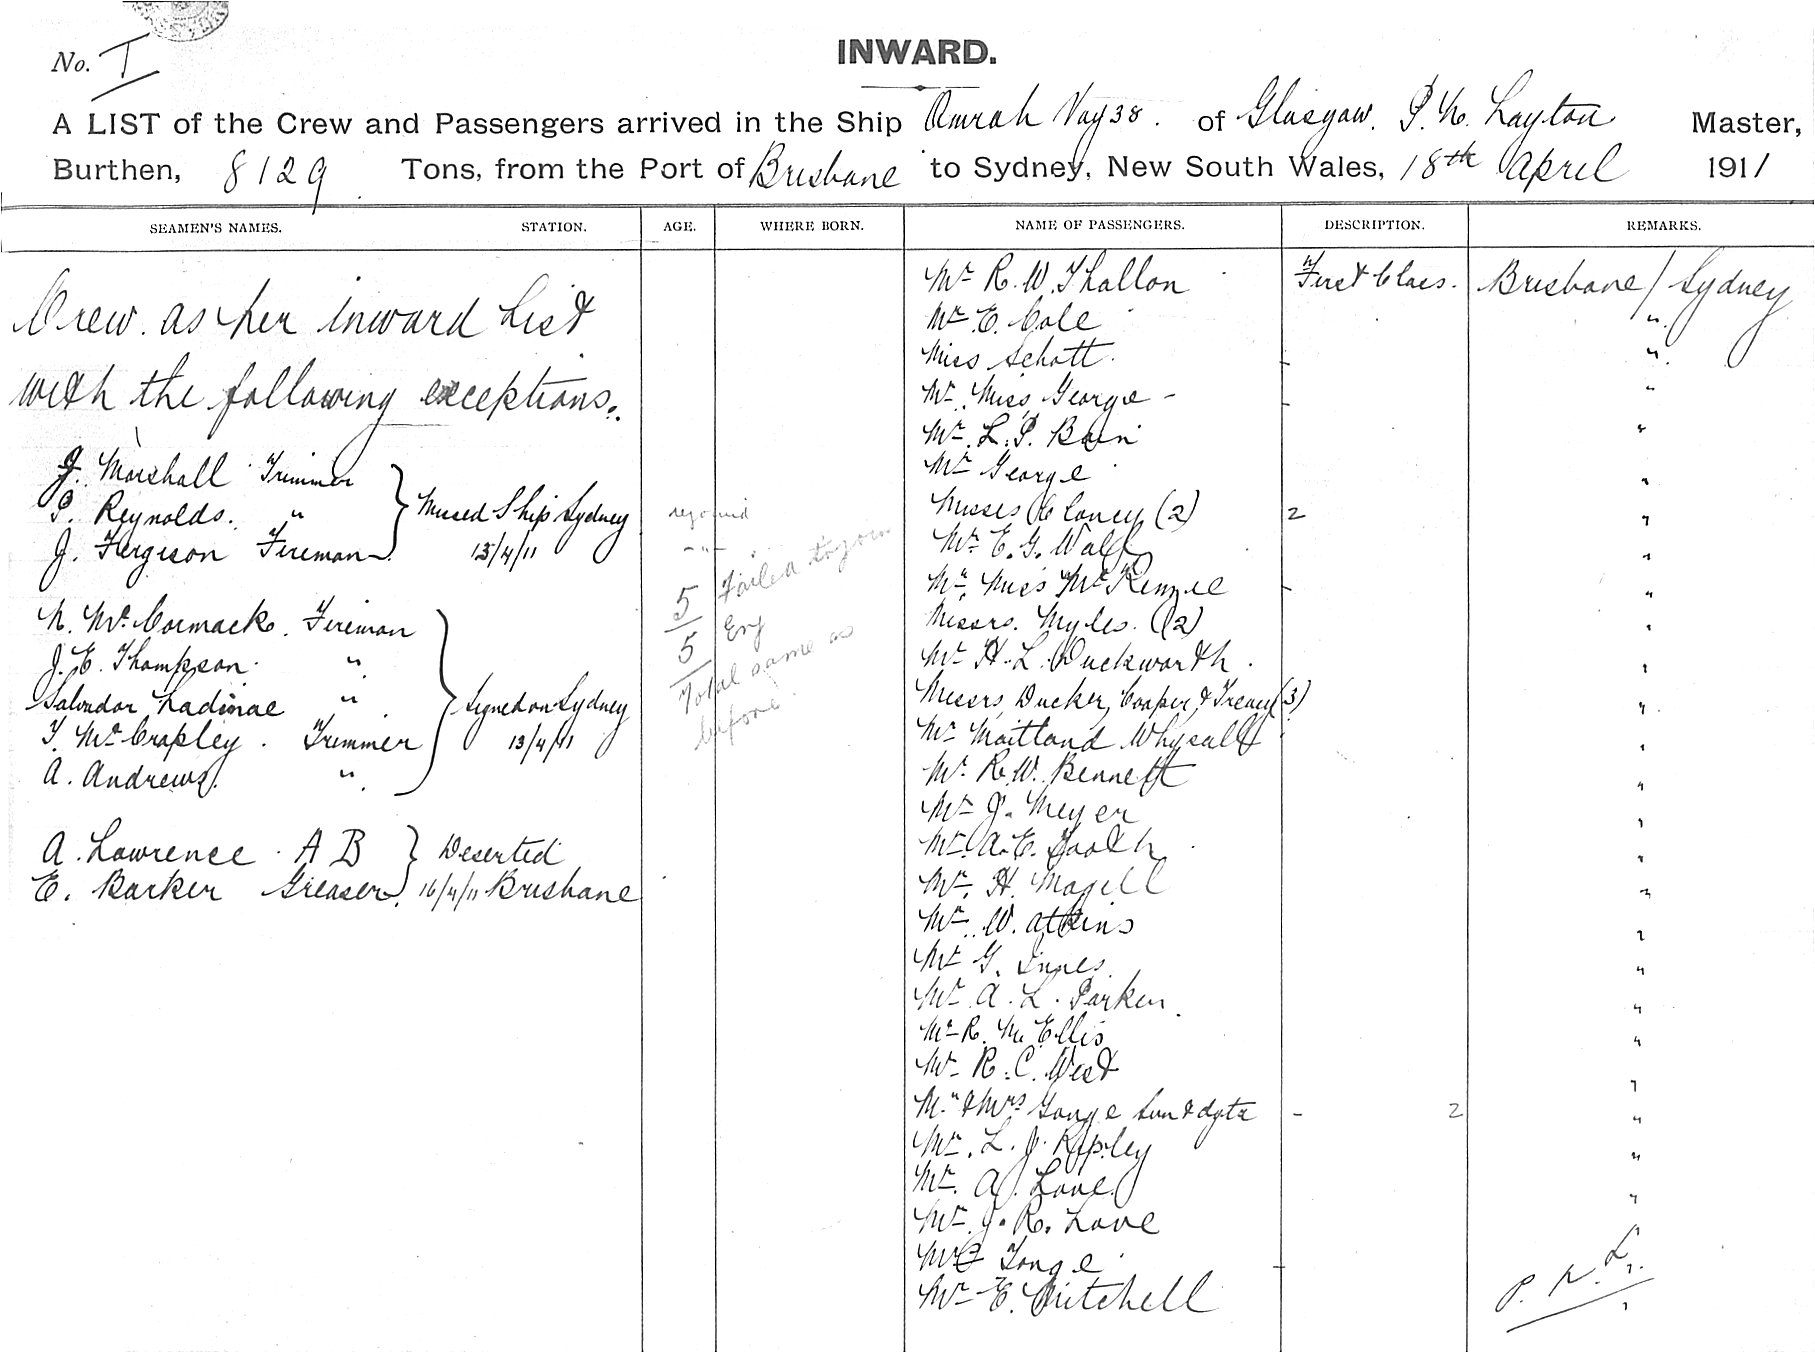 No. I
INWARD.
A LIST of the Crew and Passengers arrived in the Ship Omrah Voy 38. of Glasgow. P. N. Layton Master,
Burthen, 8129 Tons, from the Port of Brisbane to Sydney, New South Wales, 18th April 1911
SEAMEN'S NAMES. STATION. AGE. WHERE BORN. NAME OF PASSENGERS. DESCRIPTION. REMARKS.
Crew. as per inward List
with the following exceptions.
J. Marshall Trimmer
P. Reynolds. "
J. Ferguson Fireman
Missed Ship Sydney
13/4/11
rejoined
- " -
5 Failed to join
5 Eng
Total same as
before
N. McCormack. Fireman
J. E. Thompson. "
Salvador Ladinae "
T. McCrapley. Trimmer
A. Andrews. "
Signed on Sydney
13/4/11
A. Lawrence. A B
E. Barker Greaser
Deserted
16/4/11 Brisbane
Mr R. W. Thallon First Class. Brisbane / Sydney
Mr E. Cole "
Miss Schott. - "
Mr. Miss George - - "
Mr. L. P. Bain "
Mr George "
Misses Cloney (2) 2 "
Mr. E. G. Wolff "
Mr. Miss McKenzie - "
Messrs. Myles. (2) "
Mr H. L. Duckworth. "
Messrs Ducker, Cooper, & Treacy (3) "
Mr Maitland Whysall "
Mr. R. W. Bennett "
Mr J. Meyer "
Mr. A. E. Tooth "
Mr. H. Magill "
Mr. W. Atkins "
Mr G. Innes. "
Mr A. L. Parken "
Mr R. M. Ellis "
Mr R. C. West "
Mr & Mrs Tonge Son & dgtr - 2 "
Mr. L. J. Ripley "
Mr. A. Love. "
Mr. J. R. Love "
Tonge - "
Mr E. Mitchell "
P. N. L.